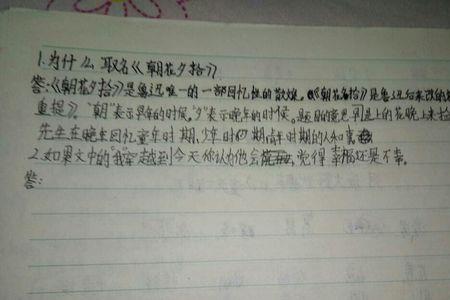 1.为什么取名《朝花夕拾》
答:《朝花夕拾》是鲁迅唯一的一部回忆性的散文。《朝花夕拾》是鲁迅后来改的
重提》。"朝"表示早年的时候,"夕"表示晚年的时候。是的意思早上的花晚上来拾
先生在晚年回忆童年时期,少年时期青年时期的人和事
2.如果文中的"我"穿越到今天你认为他会觉得幸福还是不幸。
答: